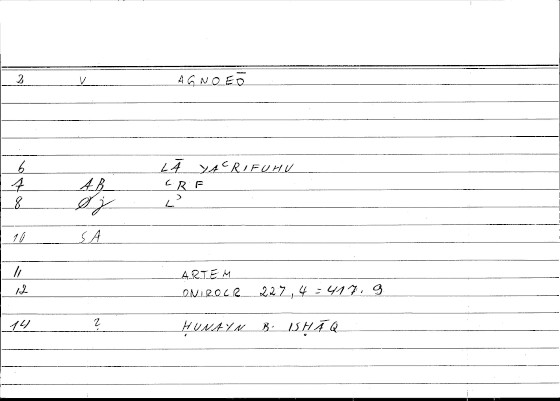 2 V AGNOEŌ
6 LĀ YAʿRIFUHU
7 AB ʿRF
8 Øj Lʾ
10 SA
11 ARTEM
12 ONIROCR 227,4 = 417.9
14 ? ḤUNAYN B. ISḤĀQ